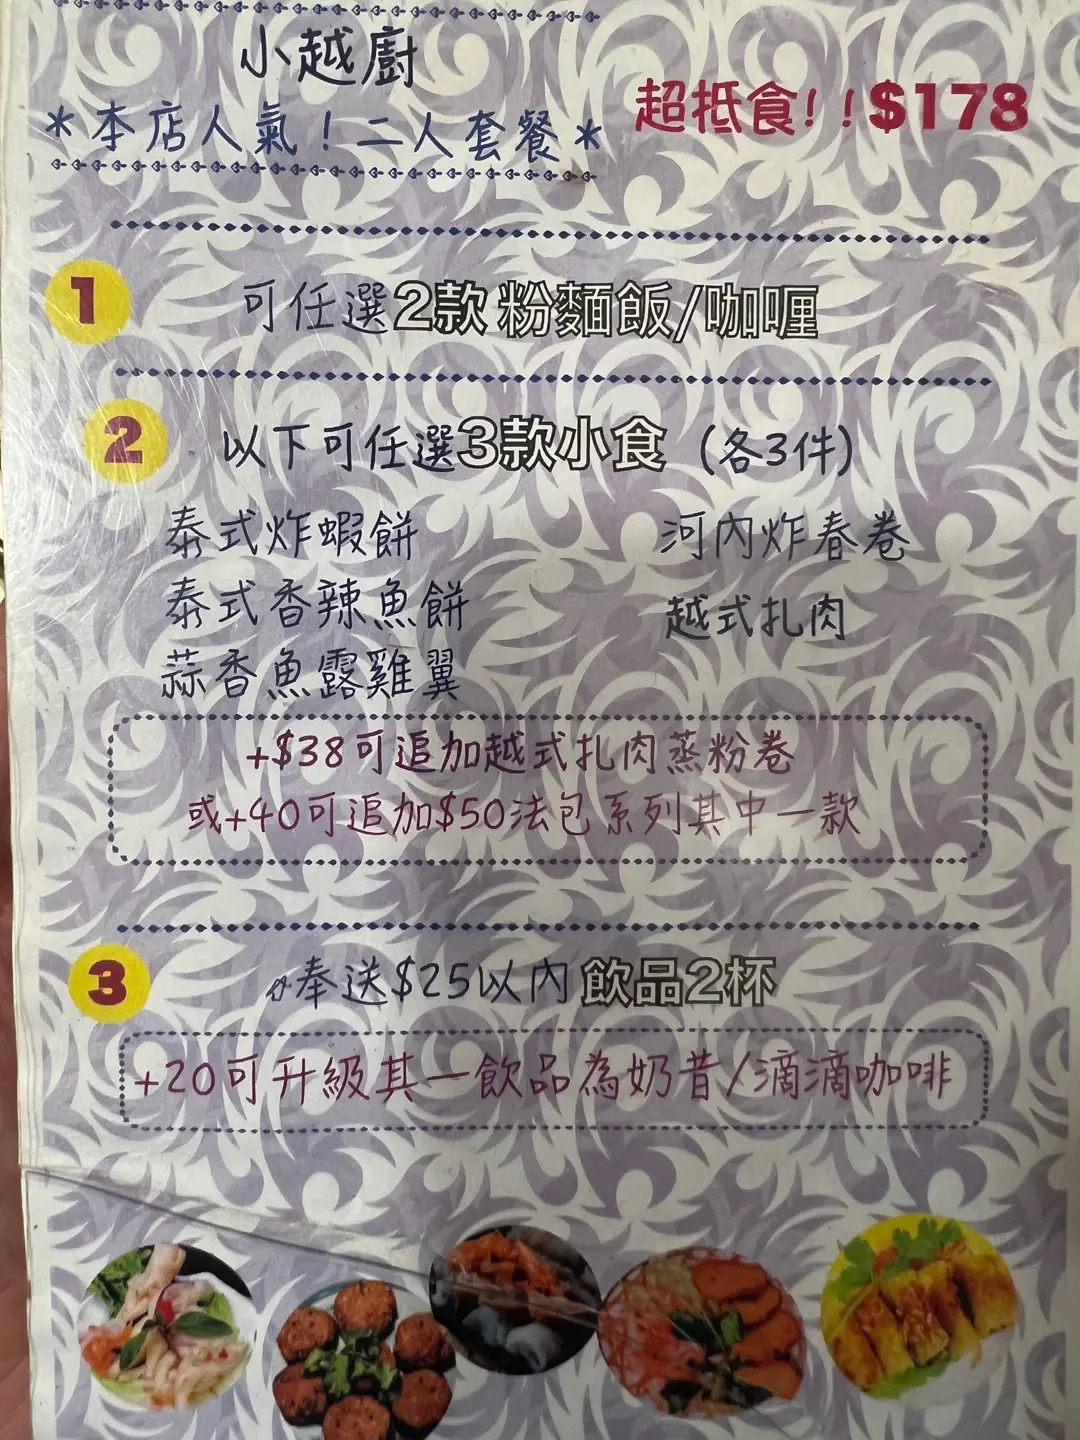 小越廚
*本店人氣!二人套餐*
超抵食!!$178
1
可任選2款粉麵飯/咖喱
2
以下可任選3款小食 (各3件)
泰式炸蝦餅
河內炸春卷
泰式香辣魚餅
越式扎肉
蒜香魚露雞翼
+$38可追加越式扎肉蒸粉卷
或+40可追加$50法包系列其中一款
3
奉送$25以內飲品2杯
+20可升級其一飲品為奶昔/滴滴咖啡